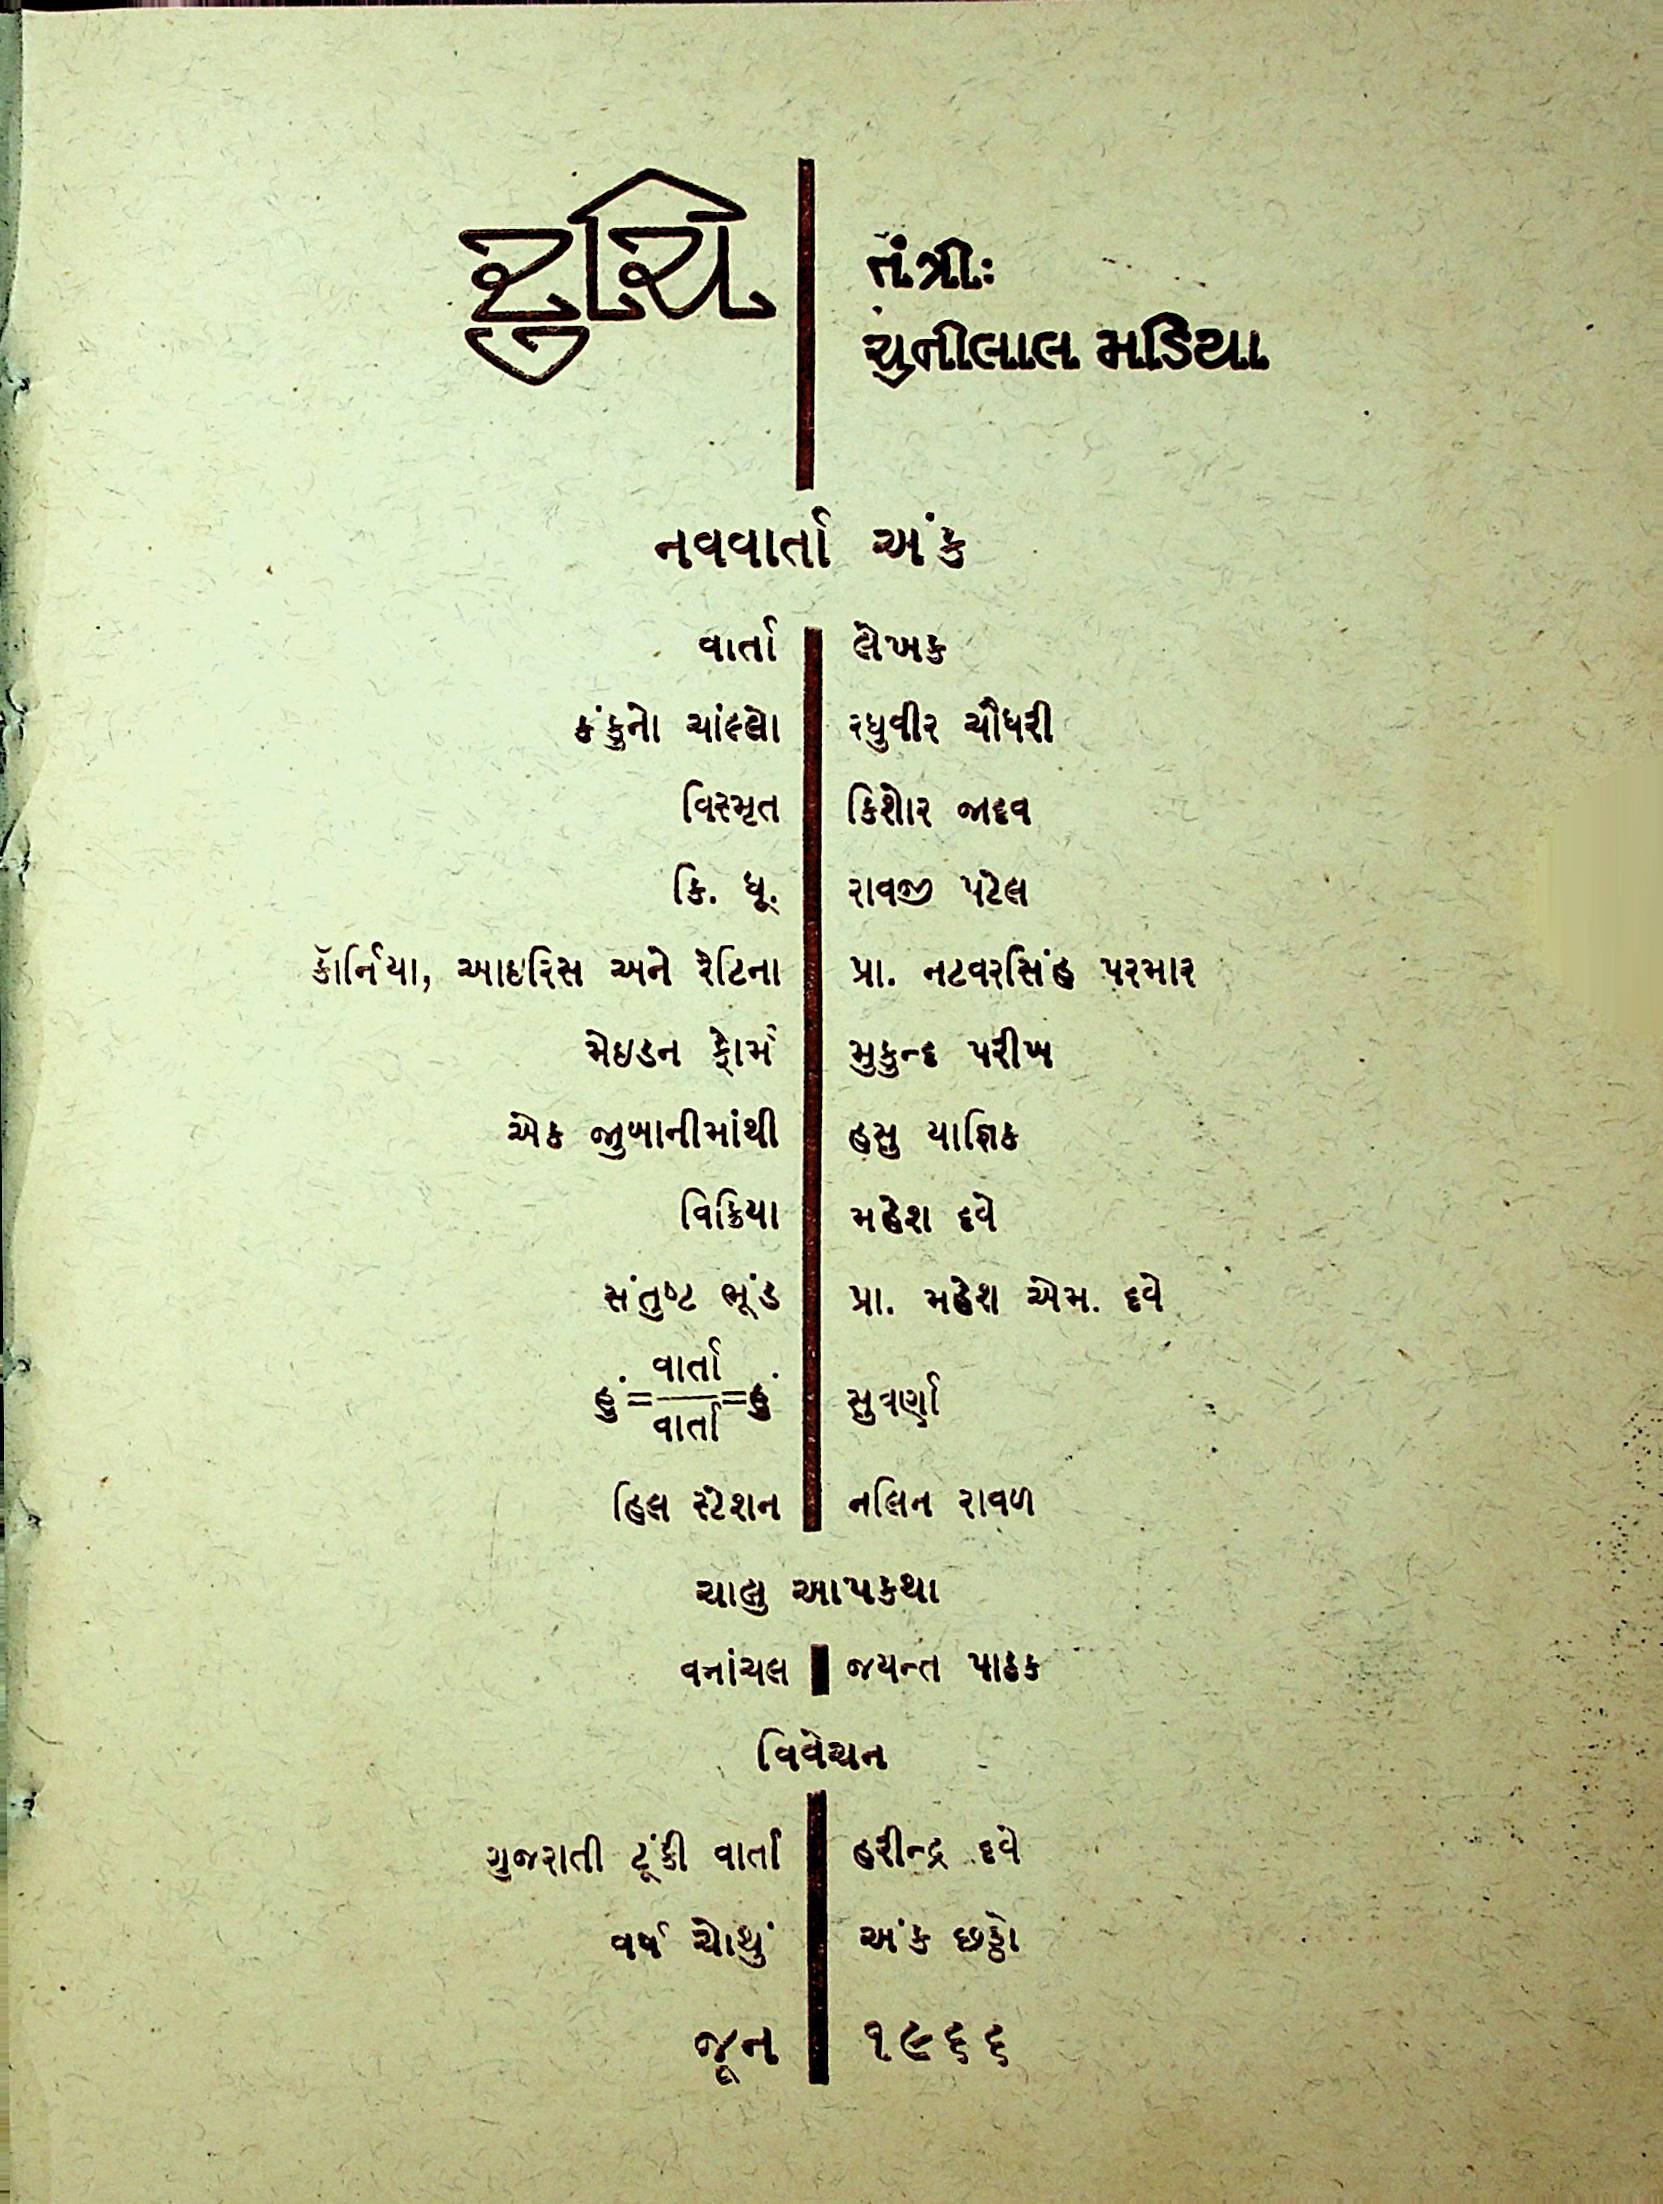 રુચિ
તંત્રીઃ
ચુનીલાલ મડિયા
નવવાર્તા અંક
વાર્તા લેખક
કંકુનો ચાંલ્લો રઘુવીર ચૌધરી
વિસ્મૃત કિશોર જાદવ
કિ. ધૂ. રાવજી પટેલ
કૉર્નિયા, આઇરિસ અને રેટિના પ્રા. નટવરસિંહ પરમાર
મેઇડન ફોર્મ મુકુન્દ પરીખ
એક જુબાનીમાંથી હસુ યાજ્ઞિક
વિક્રિયા મહેશ દવે
સંતુષ્ટ ભૂંડ પ્રા. મહેશ એમ. દવે
હું=વાર્તા/વાર્તા=હું સુવર્ણા
હિલ સ્ટેશન નલિન રાવળ
ચાલુ આપકથા
વનાંચલ જયન્ત પાઠક
વિવેચન
ગુજરાતી ટૂંકી વાર્તા હરીન્દ્ર દવે
વર્ષ ચોથું અંક છઠ્ઠો
જૂન ૧૯૬૬